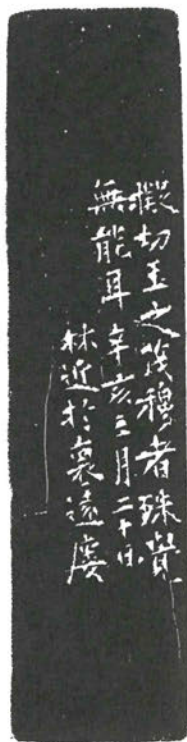 擬切玉之穆者殊覺
無能耳辛亥三月二十日
林近於褱遠廔